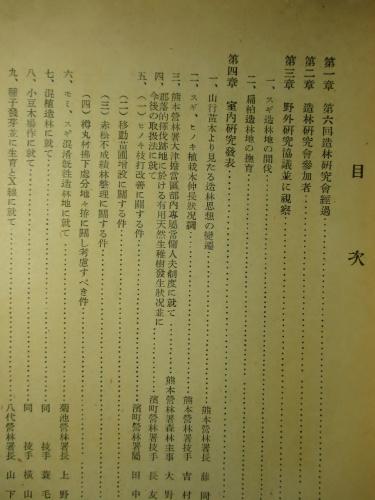 目次
第一章 第六回造林研究會經過
第二章 造林研究會參加者
第三章 野外研究協議並に視察
一、スギ造林地の間伐
二、扁柏造林地の撫育
第四章 室内研究發表
一、山行苗木より見たる造林思想の變遷 熊本營林署長 藤岡
二、スギ、ヒノキ植栽木伸長狀況調 熊本營林署技手 吉村
三、熊本營林署大津擔當區部内專屬常傭人夫制度に就て 熊本營林署森林主事 大野
四、部落的擇伐跡地に於ける有用天然生稚樹發生狀況並に
今後の取扱法に就て 濱町營林署技手 長友
五、(一)ヒノキ枝打改善に關する件 濱町營林署屬 田中
(二)移動苗圃增設に關する件
(三)赤松不成績林整理に關する件
(四)樽丸材拂下處分地々拵に關し考慮すべき件
六、モミ、スギ混淆既往造林地に就て 菊池營林署長 上野
七、混植造林に就て 同 技手 蓑毛
八、小豆木場作に就て 同 技手 横山
九、種子發芽並に生育とX線に就て 八代營林署長 山下